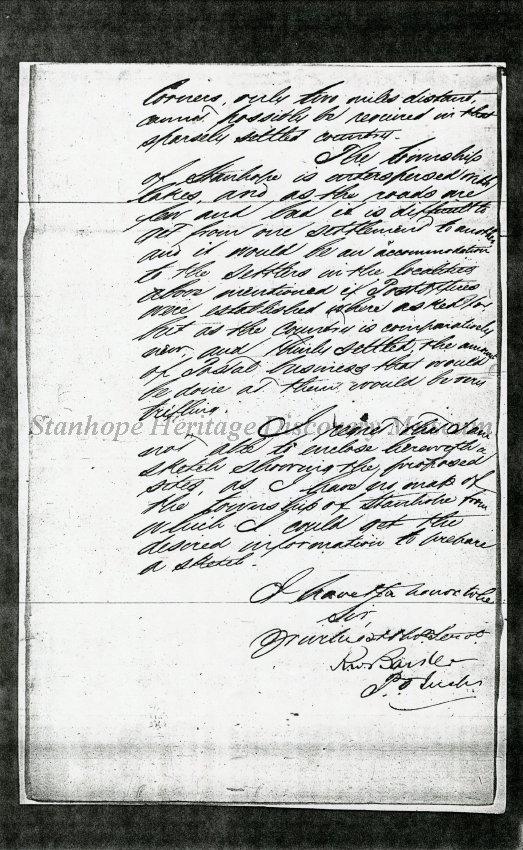 Corners, only two miles distant,
cannot possibly be required in that
sparsely settled country.
The Township
of Stanhope is interspersed with
lakes, and as the roads are
few and bad it is difficult to
get from one settlement to another
and it would be an accommodation
to the settlers in the localities
above mentioned if Post Offices
were established where asked for
but as the Country is comparatively
new, and thinly settled, the amount
of Postal business that would
be done at them would be very
trifling.
Stanhope Heritage Discovery Museum
I regret that I am
not able to enclose herewith a
sketch showing the proposed
sites, as I have no map of
the township of Stanhope from
which I could get the
desired information to prepare
a sketch.
I have the honor to be
Sir,
Your
P.O. Insp.